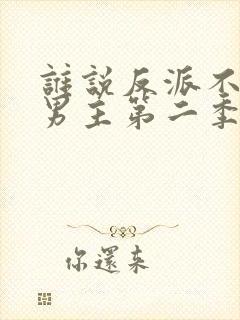 誰說反派不
男主第二季
你還來